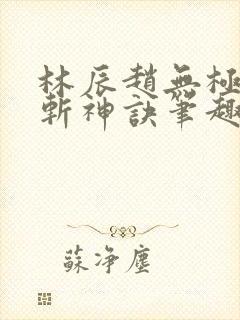 林辰趙無極
斬神訣筆趣
蘇淨塵